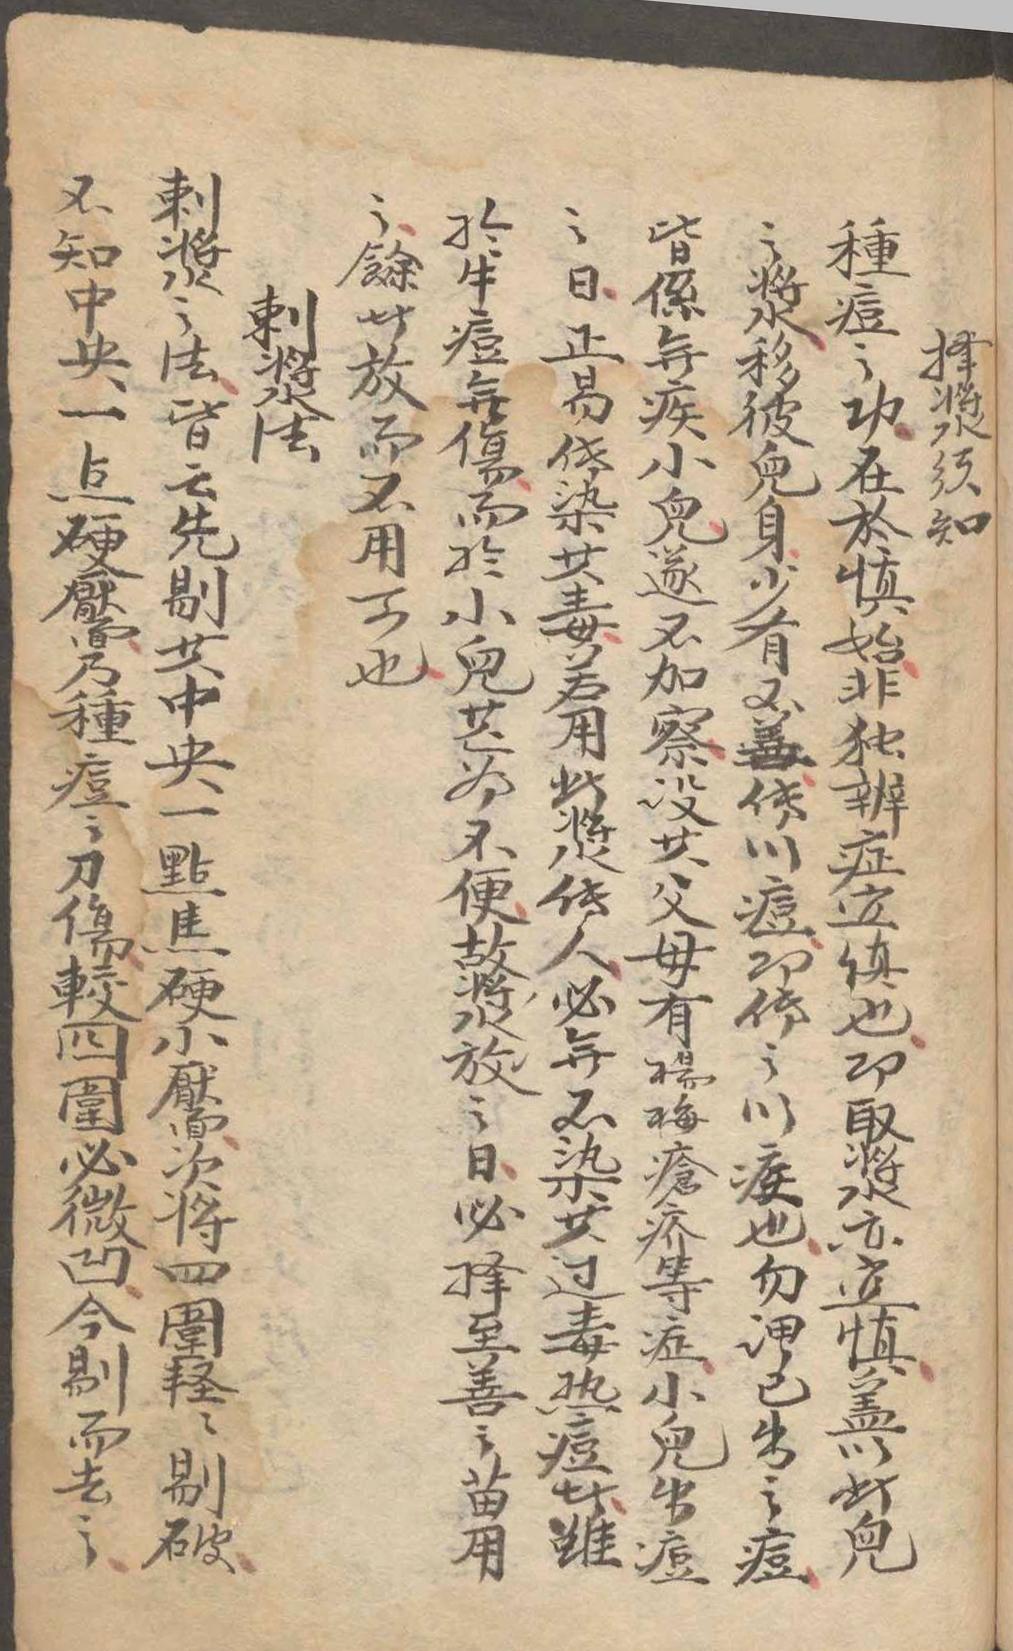 擇漿須知
種痘之功在於慎始非独辨症宜慎也即取漿亦宜慎盖以此兒
之漿移彼兒身少有不善傳以痘即傳之以疾也勿謂已出之痘
皆係無疾小兒遂不加察没其父母有楊梅瘡疥等症小兒出痘
之日正易傳染其毒若用此漿傳人必無不染其过毒热痘此雖
於牛痘無傷而於小兒甚為不便故漿放之日必擇至善之苗用
之餘此放而不用可也
刺漿法
刺漿之法皆云先剔其中央一點焦硬小靨次将四圍軽々剔破
不知中央一点硬靨乃種痘之刀傷較四圍必微凹今剔而去之